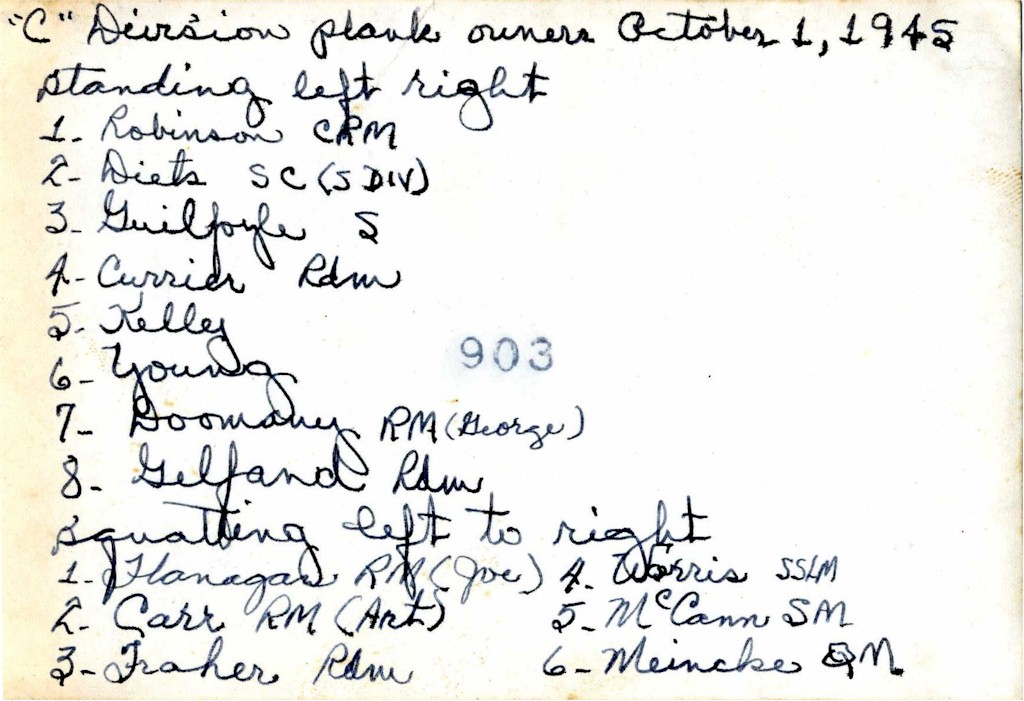 "C" Division plank owners October 1, 1945
Standing left right
1- Robinson CRM
2- Diets SC (S DIV)
3- Guilfoyle S
4- Currier Rdm
5- Kelley
6- Young
903
7- Doomany RM (George)
8- Gelfand Rdm
Squatting left to right
1- Flanagan RM (Joe) 4- Worris SSLM
2- Carr RM (Art) 5- McCann SM
3- Fraher Rdm 6- Meincke QM